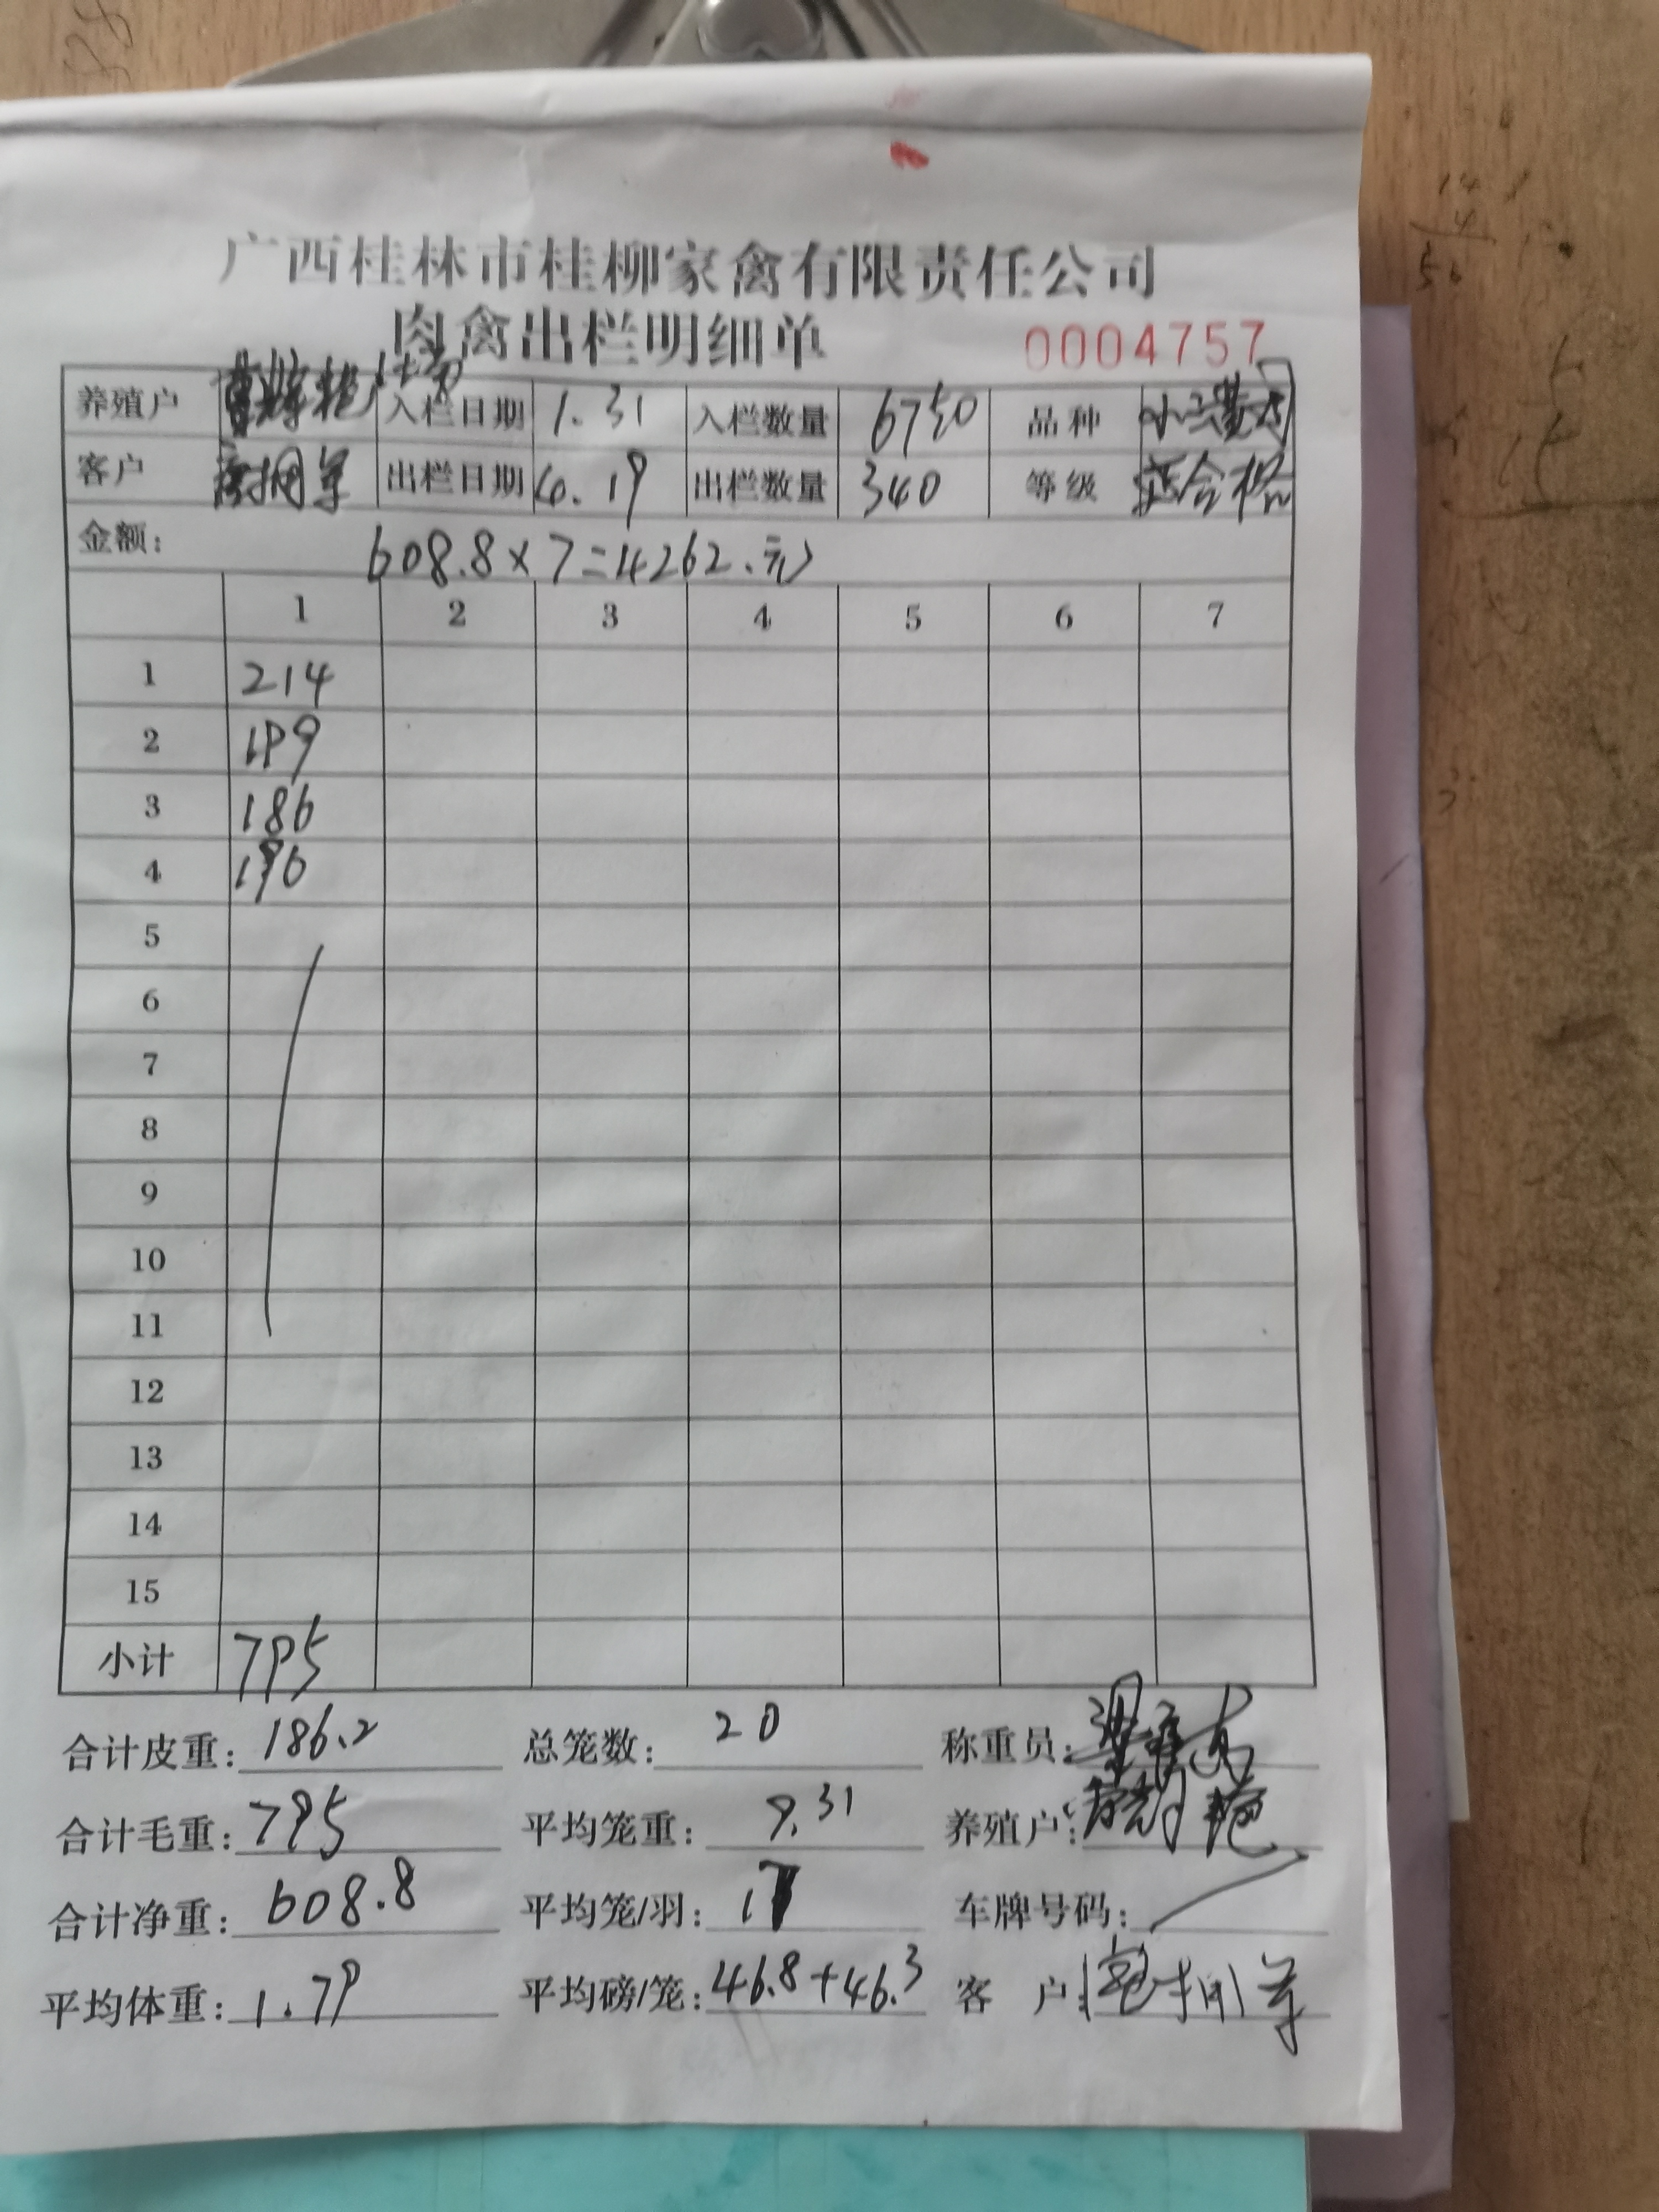 广西桂林市桂柳家禽有限责任公司
肉禽出栏明细单 0004757
养殖户 入栏日期 1.31 入栏数量 6750 品种
客户 出栏日期 4.19 出栏数量 340 等级 合格
金额: 608.8×7=4262.元
1 2 3 4 5 6 7
1 214
2 199
3 186
4 196
5
6
7
8
9
10
11
12
13
14
15
小计 795
合计皮重: 186.2 总笼数: 20 称重员:
合计毛重: 795 平均笼重: 9.31 养殖户:
合计净重: 608.8 平均笼/羽: 17 车牌号码:
平均体重: 1.79 平均磅/笼: 46.8+46.3 客户: